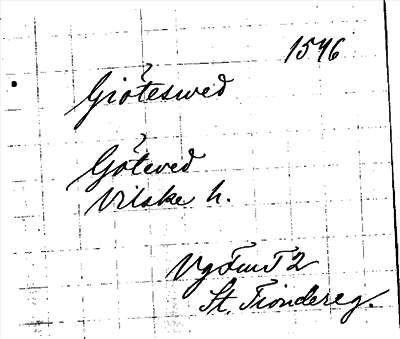 1546
Giötesweđ
Göteveđ
Vilske h.
Vg Fm T 2
St. Tiondereg.